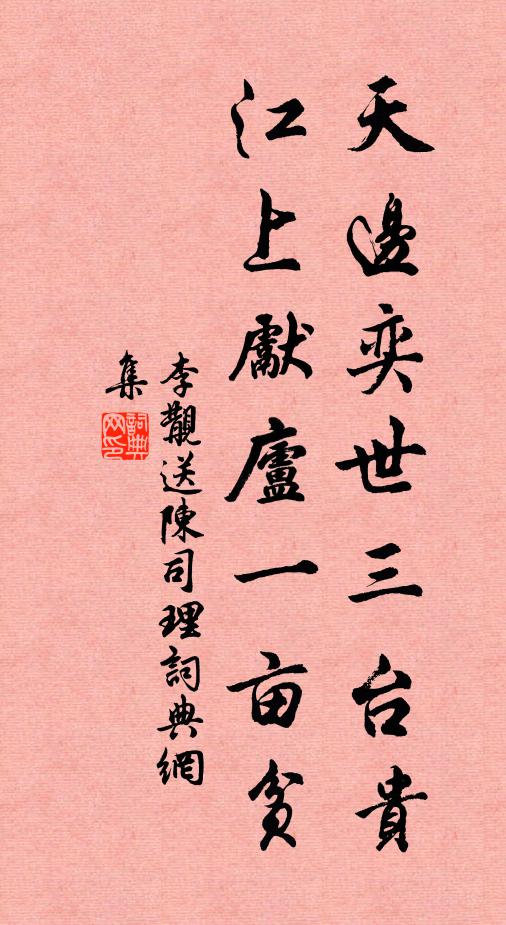 天邊奕世三台貴
江上獻廬一亩貧
李觀送陳司理詞典網
集
詞典
网印